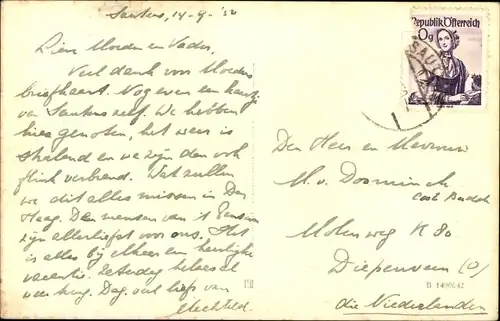 Sautens, 14-9-'50
Lieve Moeder en Vader,
Veel dank voor Moeders
briefkaart. Nog even een kaartje
van Sautens zelf. We hebben
hier genoten, het weer is
stralend en we zijn dan ook
flink verbrand. Wat zullen
we dit alles missen in Den
Haag. De mensen van 't Pension
zijn allerliefst voor ons. Het
is alles bij elkaar een heerlijke
vacantie. Zaterdag helaas al
weer terug. Dag, veel liefs van
Mechteld.
Republik Österreich
SAUT
Den Heer en Mevrouw
M. v. Dorninck
Molenweg K 80
Diepenveen (O)
B 1490642
die Niederlanden